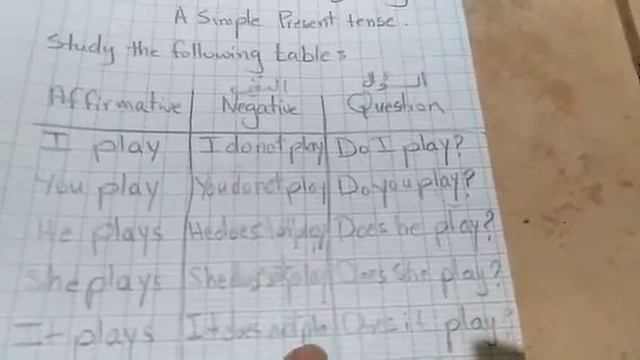 A Simple Present tense.
Study the following table:
النفي السؤال
Affirmative Negative Question
I play I do not play Do I play?
You play You do not play Do you play?
He plays He does not play Does he play?
She plays She does not play Does she play?
It plays It does not play Does it play?